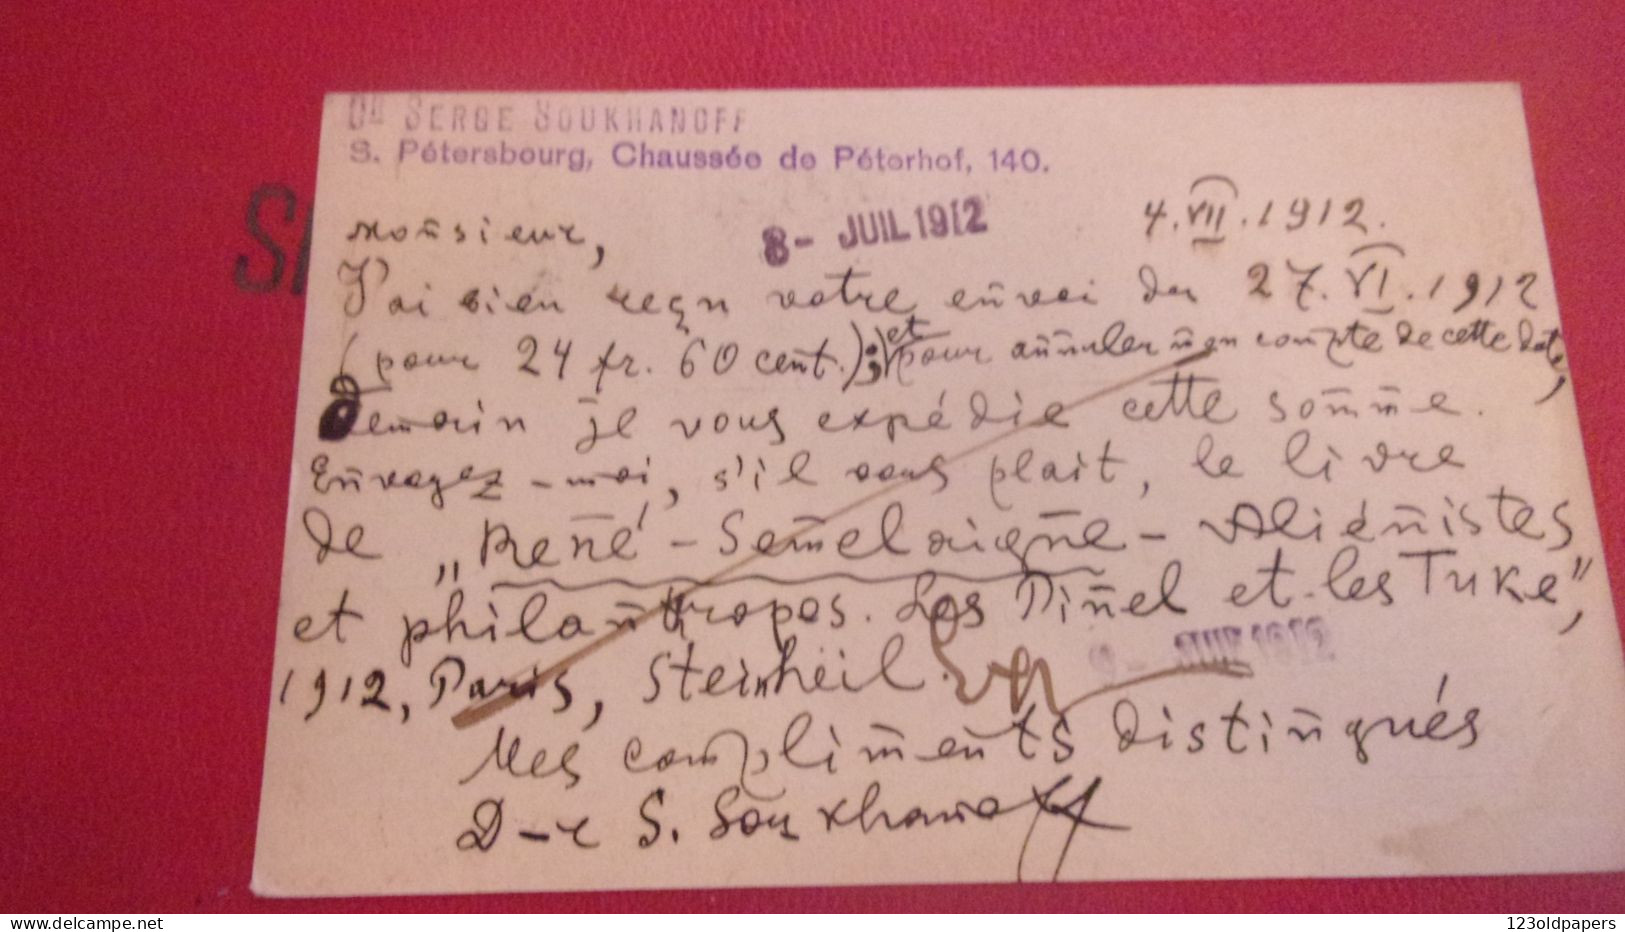 Dr SERGE SOUKHANOFF
S. Pétersbourg, Chaussée de Péterhof, 140.
8 - JUIL 1912
4. VII. 1912.
Monsieur,
J'ai bien reçu votre envoi du 27. VI. 1912
(pour 24 fr. 60 cent.); et pour annuler mon compte de cette date,
Demain je vous expédie cette somme.
Envoyez-moi, s'il vous plait, le livre
de „René - Semelaigne - Aliénistes
et philantropes. Les Pinel et les Tuke",
1912, Paris, Steinheil.
9 - JUIL 1912
Mes compliments distingués
D-r S. Soukhanoff
www.delcampe.net
123oldpapers